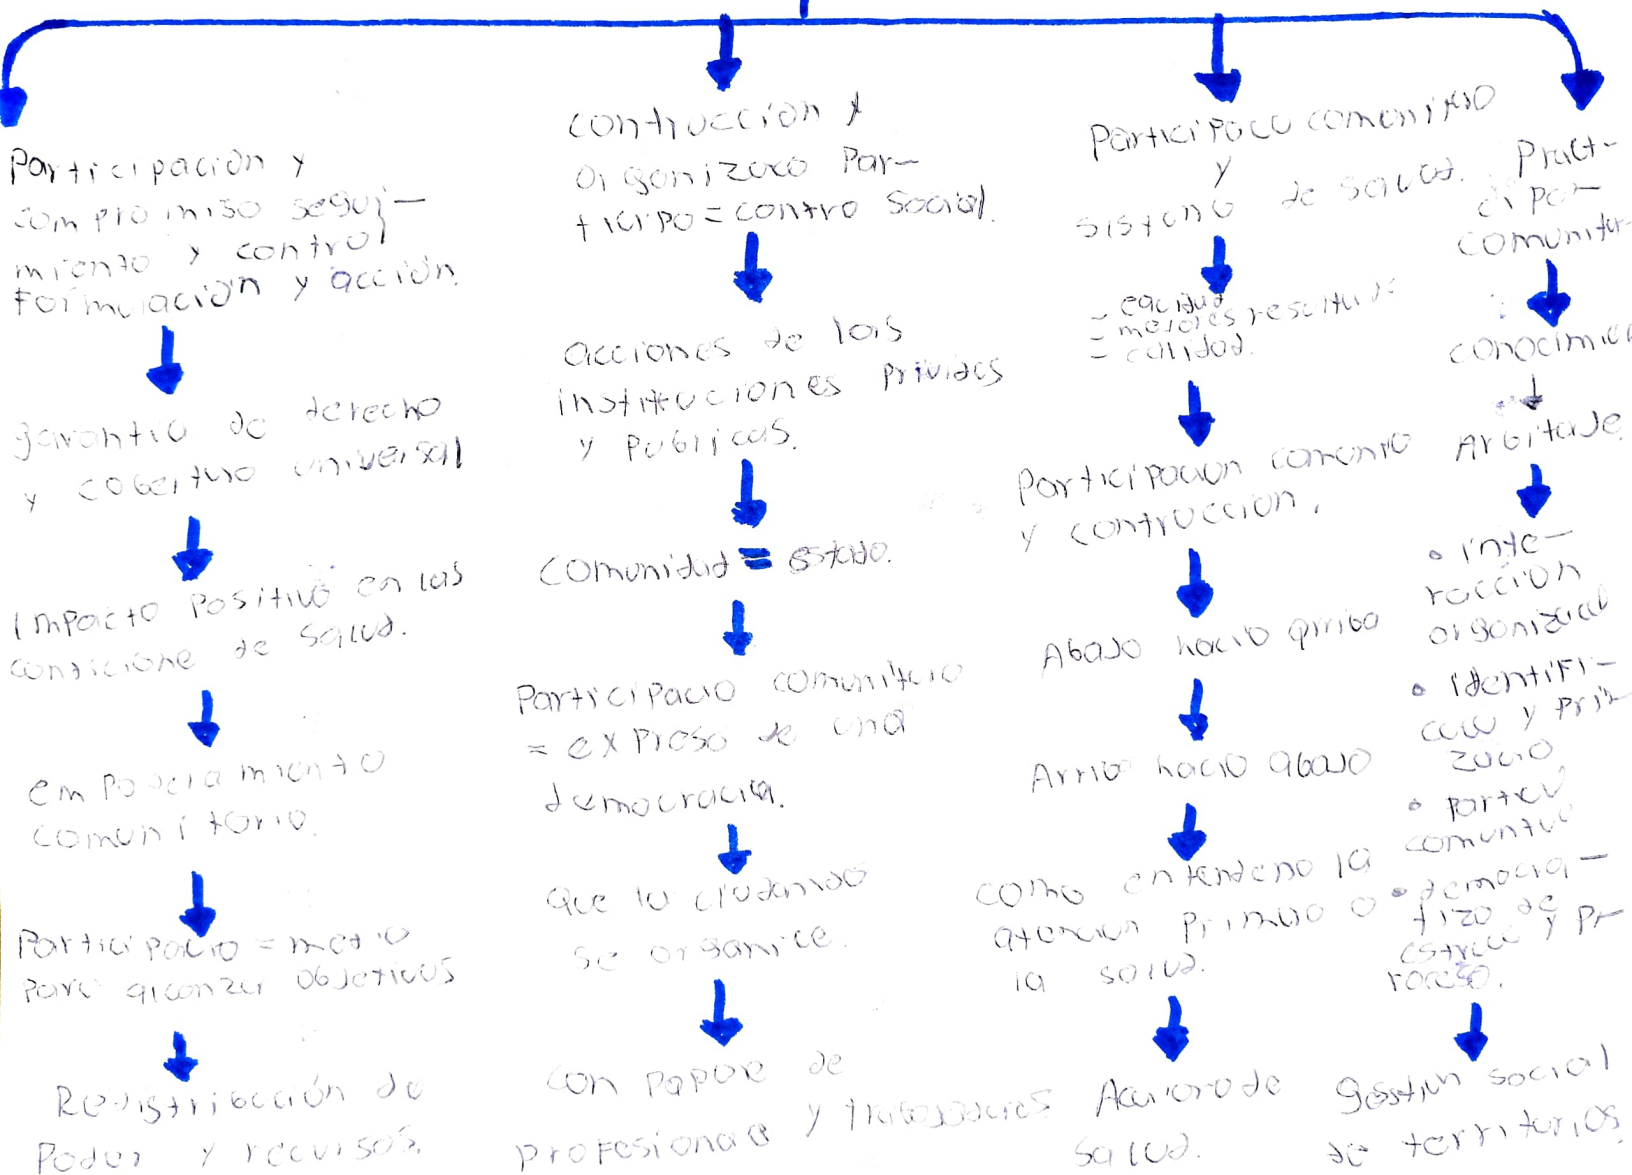 Participación y
compromiso segui-
miento y control
Formulación y acción.
garantia de derecho
y cobertura universal
Impacto Positivo en las
condicione de salud.
empoderamiento
comunitario.
Participacio = medio
para alcanzar objetivos
Redistribución de
Poder y recursos.
contruccion y
organizaco Par-
ticipo = contro social.
acciones de las
instituciones Prividas
y publicas.
comunidad = estado.
Participacio comunitario
= expreso de una
democracia.
que la ciudanado
se organice.
con papue de
profesionale y trabajadores
Participaco comunitario
y
sistema de salud.
- equidad
= mejores resultad
= calidad.
Participacion comunita
y contruccion.
Abajo hacia arriba
Arriba hacia abajo
como entendeno la
atencion primario a
la salud.
de
salud.
Pract-
cipa-
comunitar
conocimien
Arbitaje.
• inte-
raccion
organizacl
• identifi-
y
zacio.
•
comunit
• democra-
tizo de
y pr
roceso.
gestiun social
de territorios.